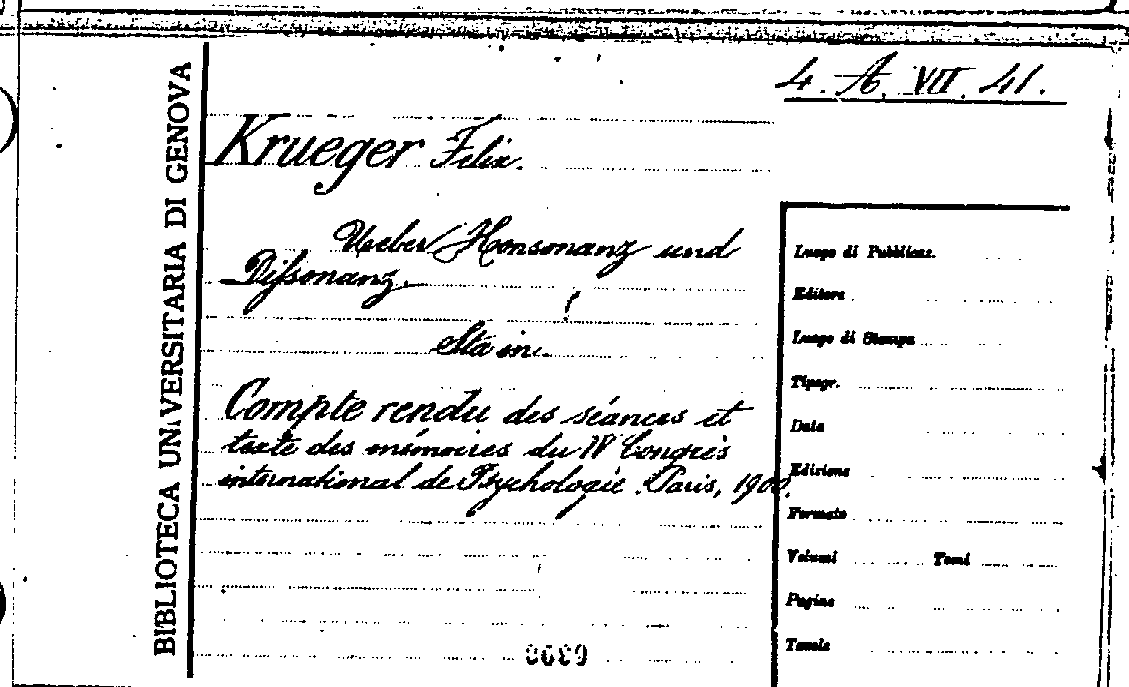 4. A. VII. 41.
BIBLIOTECA UNIVERSITARIA DI GENOVA
Krueger Felix.
Ueber Konsonanz und
Dissonanz.
Sta in:
Compte rendu des séances et
texte des mémoires du IV Congrès
international de Psychologie. Paris, 1900.
Luogo di Pubblicaz.
Editore
Luogo di Stampa
Tipogr.
Data
Edizione
Formato
Volumi Tomi
Pagine
Tavole